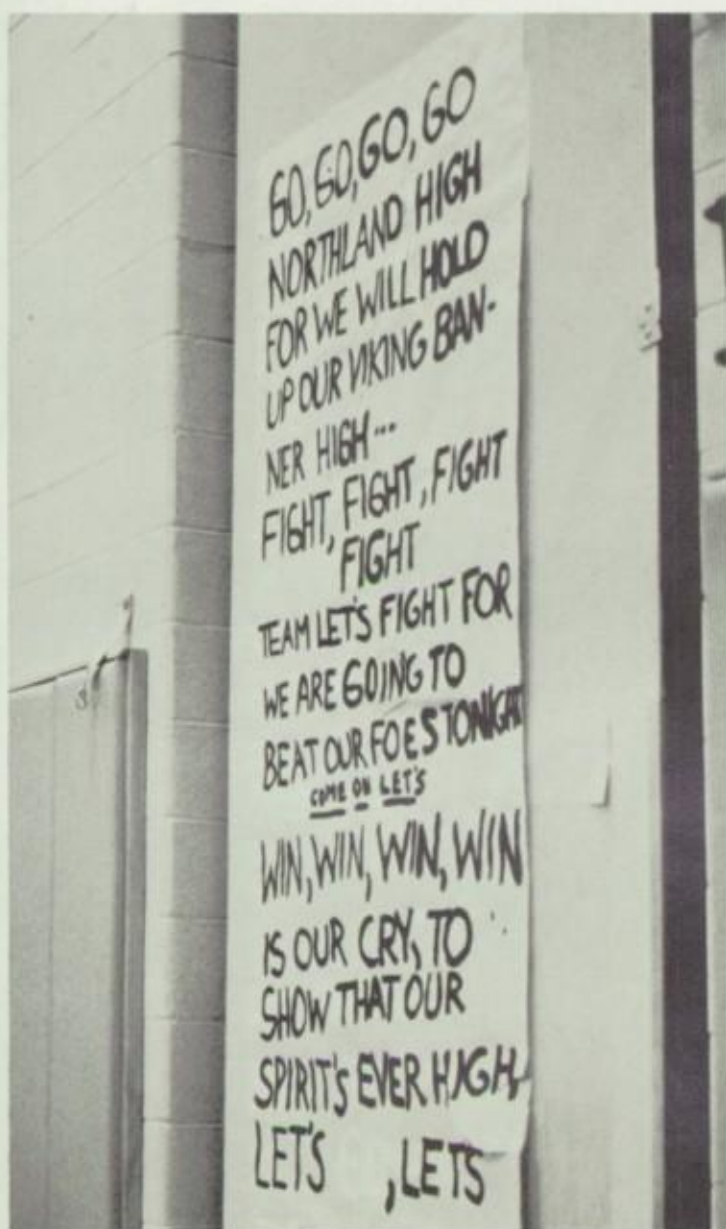 GO, GO, GO, GO
NORTHLAND HIGH
FOR WE WILL HOLD
UP OUR VIKING BAN-
NER HIGH...
FIGHT, FIGHT, FIGHT
FIGHT
TEAM LET'S FIGHT FOR
WE ARE GOING TO
BEAT OUR FOES TONIGHT
COME ON LET'S
WIN, WIN, WIN, WIN
IS OUR CRY, TO
SHOW THAT OUR
SPIRIT'S EVER HIGH,
LET'S , LETS